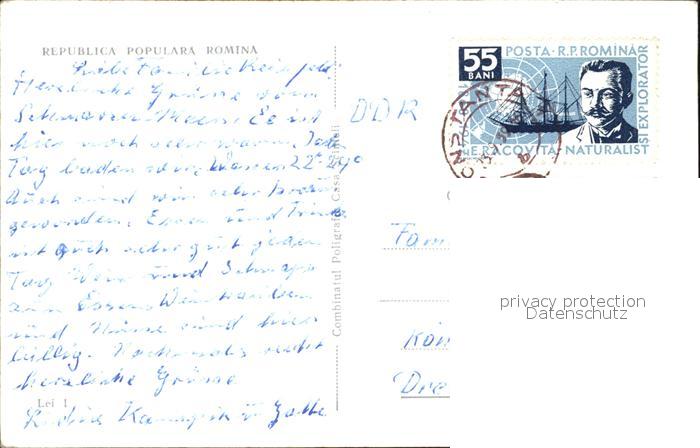 REPUBLICA POPULARA ROMINA
Liebe Familie
Herzliche Grüsse vom
Schwarzen Meer. Es ist
hier noch sehr warm. Jeden
Tag baden wir, Wasser 22°
Auch sind wir sehr braun
geworden. Essen und Trinken
ist auch sehr gut jeden
Tag Wein und Schnaps
zum Essen. Weintrauben
und Nüsse sind hier
billig. Nochmals recht
herzliche Grüsse
Lei 1
Combinatul Poligrafic Casa Scînteii
DDR
55
BANI
POSTA·R.P.ROMINĂ
E. RACOVIŢĂ NATURALIST
SI EXPLORATOR
CONSTANTA
Fam
Kön
Dre
privacy protection
Datenschutz